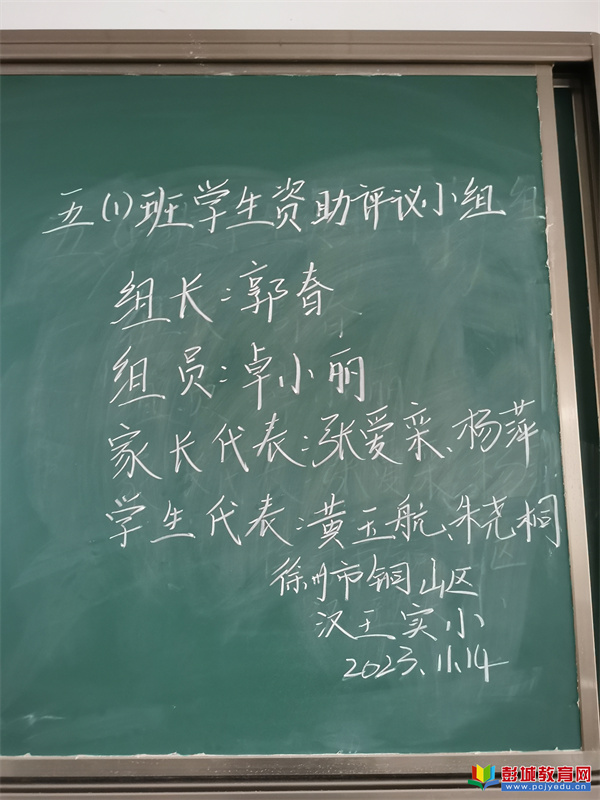 五(1)班学生资助评议小组
组长:郭春
组员:卓小丽
家长代表:张爱栾、杨萍
学生代表:黄玉航、朱尧桐
徐州市铜山区
汉王实小
2023.11.14
彭城教育网
www.pcjyedu.cn